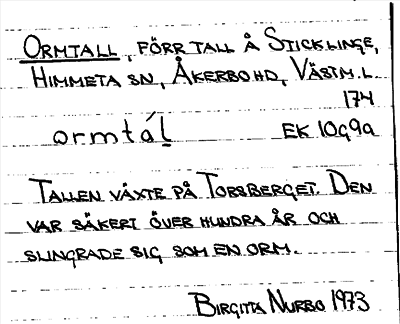 ORMTALL, FÖRR TALL Å STICKLINGE,
HIMMETA SN, ÅKERBO HD, VÄSTM. L.
174
ormtáḷ EK 10G9a
TALLEN VÄXTE PÅ TORSBERGET. DEN
VAR SÄKERT ÖVER HUNDRA ÅR OCH
SLINGRADE SIG SOM EN ORM.
BIRGITTA NURBO 1973